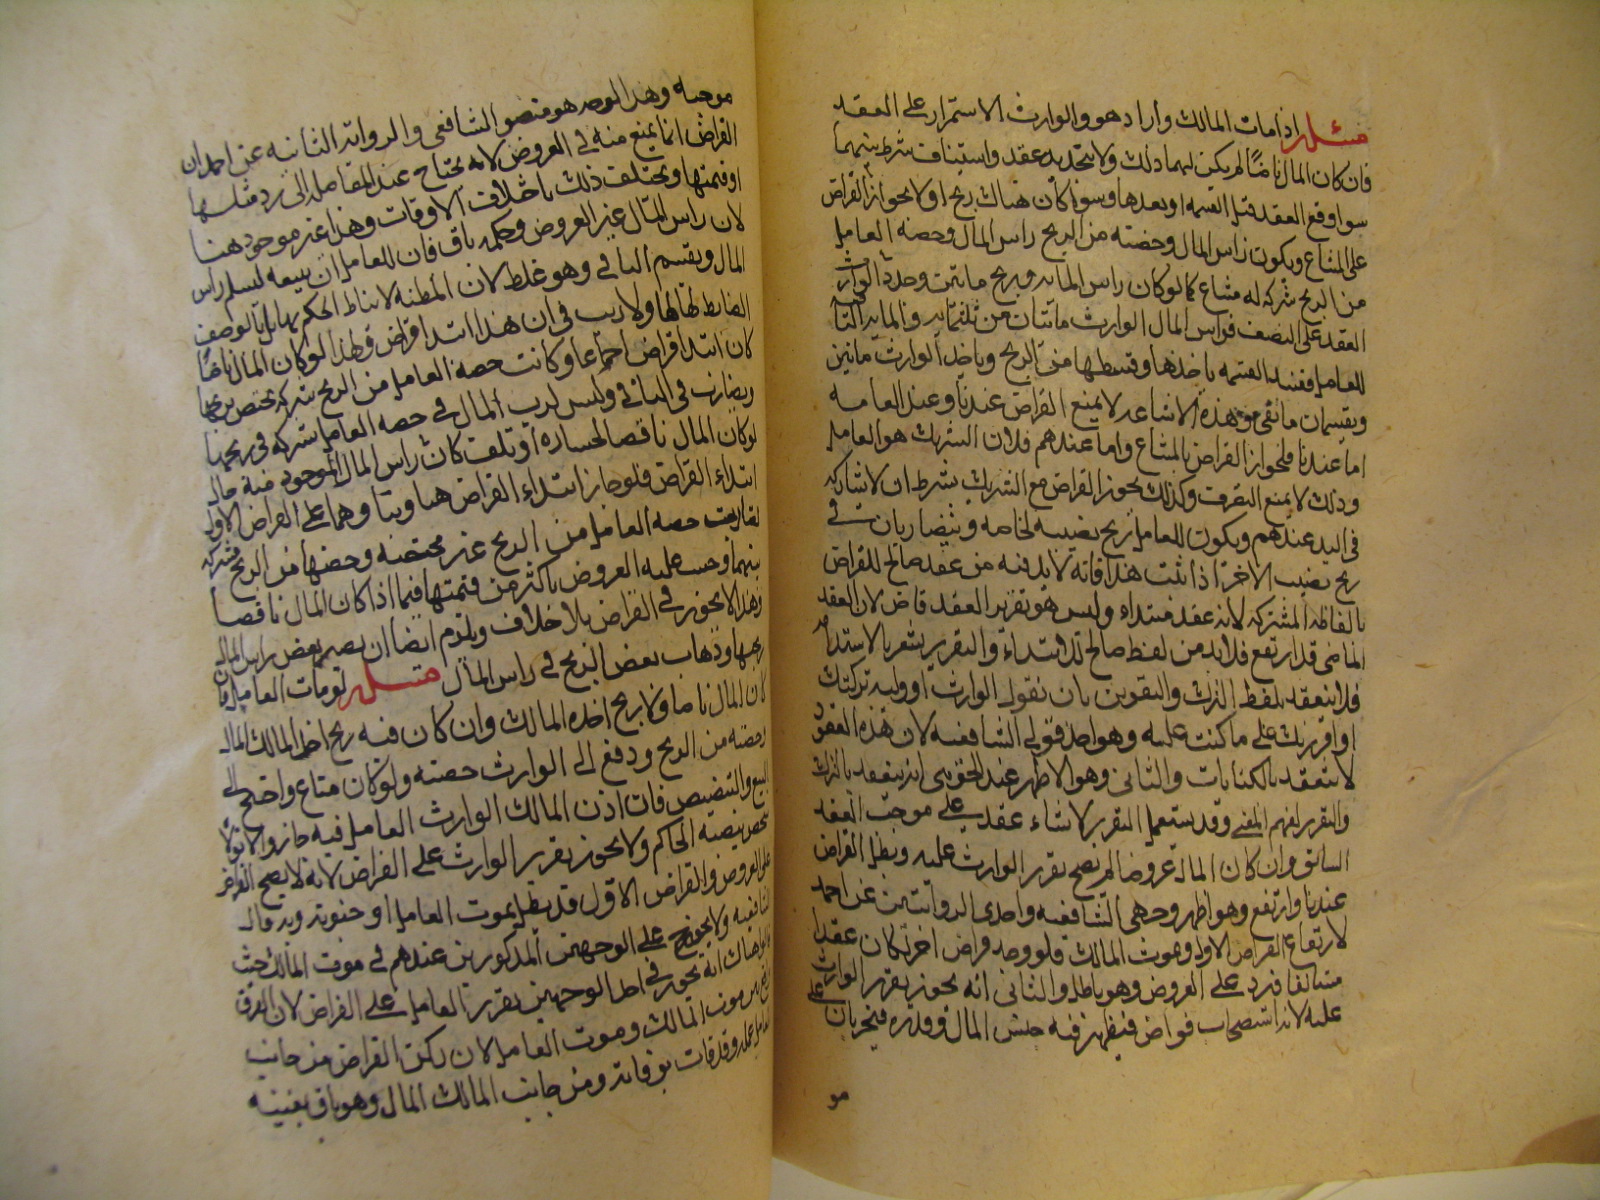 مسئله اذا مات المالك واراد هو والوارث الاستمرار على العقد
فان كان المال ناضا لم يكن لهما ذلك ولا بتجديد عقد واستيناف شرط بينهما
سوا وقع العقد قبل القسمه او بعدها وسوا كان هناك ربح او لا لجواز القراض
على المشاع ويكون راس المال وحصته من الربح راس المال وحصه العامل
من الربح شركه له مشاع كما لو كان راس المال مايه وربح مايتين وجدد الوارث
العقد على النصف فراس المال الوارث مايتان من ثلثمايه والمايه الثالثه
للعامل فعند القسمه ياخذها وقسطها من الربح وياخذ الوارث مايتين
ويقسمان ما بقى وهذه الاشاعه لا يمنع القراض عندنا وعند العامه
اما عندنا فلجواز القراض بالمشاع واما عندهم فلان الشريك هو العامل
وذلك لا يمنع التصرف وكذلك يجوز القراض مع الشريك بشرط ان لا يشاركه
فى اليد عندهم ويكون للعامل ربح نصيبه لخاصه ويتضاربان فى
ربح نصيب الاخر اذا ثبت هذا فانه لا بد فيه من عقد صالح للقراض
بالفاظه المشتركه لانه عقد مبتداء وليس هو تقرير العقد ماض لان العقد
الماضى قد ارتفع فلا بد من لفظ صالح للابتداء والتقرير يشعر بالاستدامه
فلا ينعقد بلفظ الترك والتقرير بان يقول الوارث او وليه تركتك
او اقررتك على ما كنت عليه وهو احد قولى الشافعيه لان هذه العقود
لا تنعقد بالكنايات والثانى وهو الاظهر عند الجوينى انه ينعقد بالترك
والتقرير لفهم المعنى وقد يستعمل التقرير لانشاء عقد على موجب العقد
السابق وان كان المال عروضا لم يصح تقرير الوارث عليه وبطل القراض
عندنا وارتفع وهو اظهر وجهى الشافعيه واحدى الروايتين عن احمد
لارتفاع القراض الاول وهوت المالك فلو وجد قراض اخر لكان عقدا
مستانفا فرد على العروض وهو باطل والثانى انه يجوز تقرير الوارث
عليه لانه استصحاب قراض فيظهر فيه جنس المال وقدره فيجريان على
مو
موجبه وهذا الوجه هو منصوص الشافعى والروايه الثانيه عن احمد لان
القراض انما يمنع منه فى العروض لانه يحتاج عند المفاصله الى رد مثلها
او قيمتها ويختلف ذلك باختلاف الاوقات وهذا غير موجود هنا
لان راس المال غير العروض وحكمه باق فان للعامل ان يبيعه ليسلم راس
المال ويقسم الباقى وهو غلط لان المظنه لا يناط الحكم بها بل بالوصف
الضابط لها ولا ريب فى ان هذا ابتدا قراض ولهذا لو كان المال ناضا
كان ابتدا قراض اجماعا وكانت حصه العامل من الربح شركه يختص بربحها
ويضارب فى الباقى وليس لرب المال فى حصه العامل شركه فى ربحها
لو كان المال ناقصا لخساره او تلف كان راس المال الموجود منه حال
ابتداء القراض فلو جاز ابتداء القراض هنا وبناوهما على القراض الاول
لصارت حصه العامل من الربح غير مختصه وحصتها من الربح مشتركه
بينهما وحسب عليه العروض باكثر من قيمتها فيما اذا كان المال ناقصا
وهذا لا يجوز فى القراض بلا خلاف ويلزم ايضا ان يصير بعض راس المال
ربحا وذهاب بعض الربح فى راس المال مسئله لو مات العامل فان
كان المال ناضا ولا ربح اخذه المالك وان كان فيه ربح اخذ المالك المال
وحصته من الربح ودفع الى الوارث حصته ولو كان متاع واحتيج الى
البيع والتنضيض فان اذن المالك الوارث العامل فيه جاز والا تولا
شخص ينصبه الحاكم ولا يجوز تقرير الوارث على القراض لانه لا يصح القراض
على العروض والقراض الاول قد بطل بموت العامل او جنونه وبه قال
الشافعيه ولا يخرج على الوجهين المذكورين عندهم فى موت المالك حيث
انه يجوز فى احد الوجهين تقرير العامل على القراض لان الفرق
بين موت المالك وموت العامل لان ركن القراض من جانب
العامل عمله وقد فات بوفاته ومن جانب المالك المال وهو باق بعينه